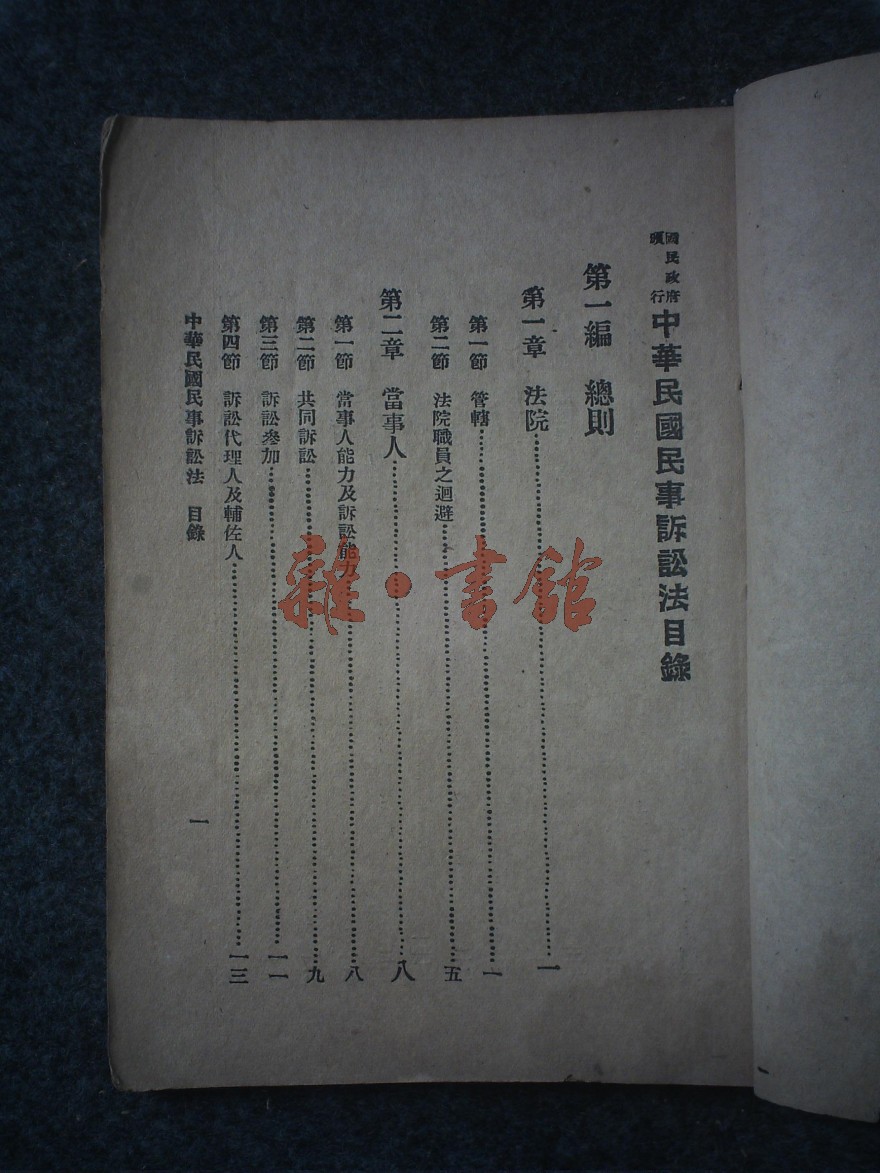 國民政府頒行中華民國民事訴訟法目錄
第一編 總則
第一章 法院……一
第一節 管轄……一
第二節 法院職員之迴避……五
第二章 當事人……八
第一節 當事人能力及訴訟能力……八
第二節 共同訴訟……九
第三節 訴訟參加……一一
第四節 訴訟代理人及輔佐人……一三
中華民國民事訴訟法 目錄 一
雜·書館